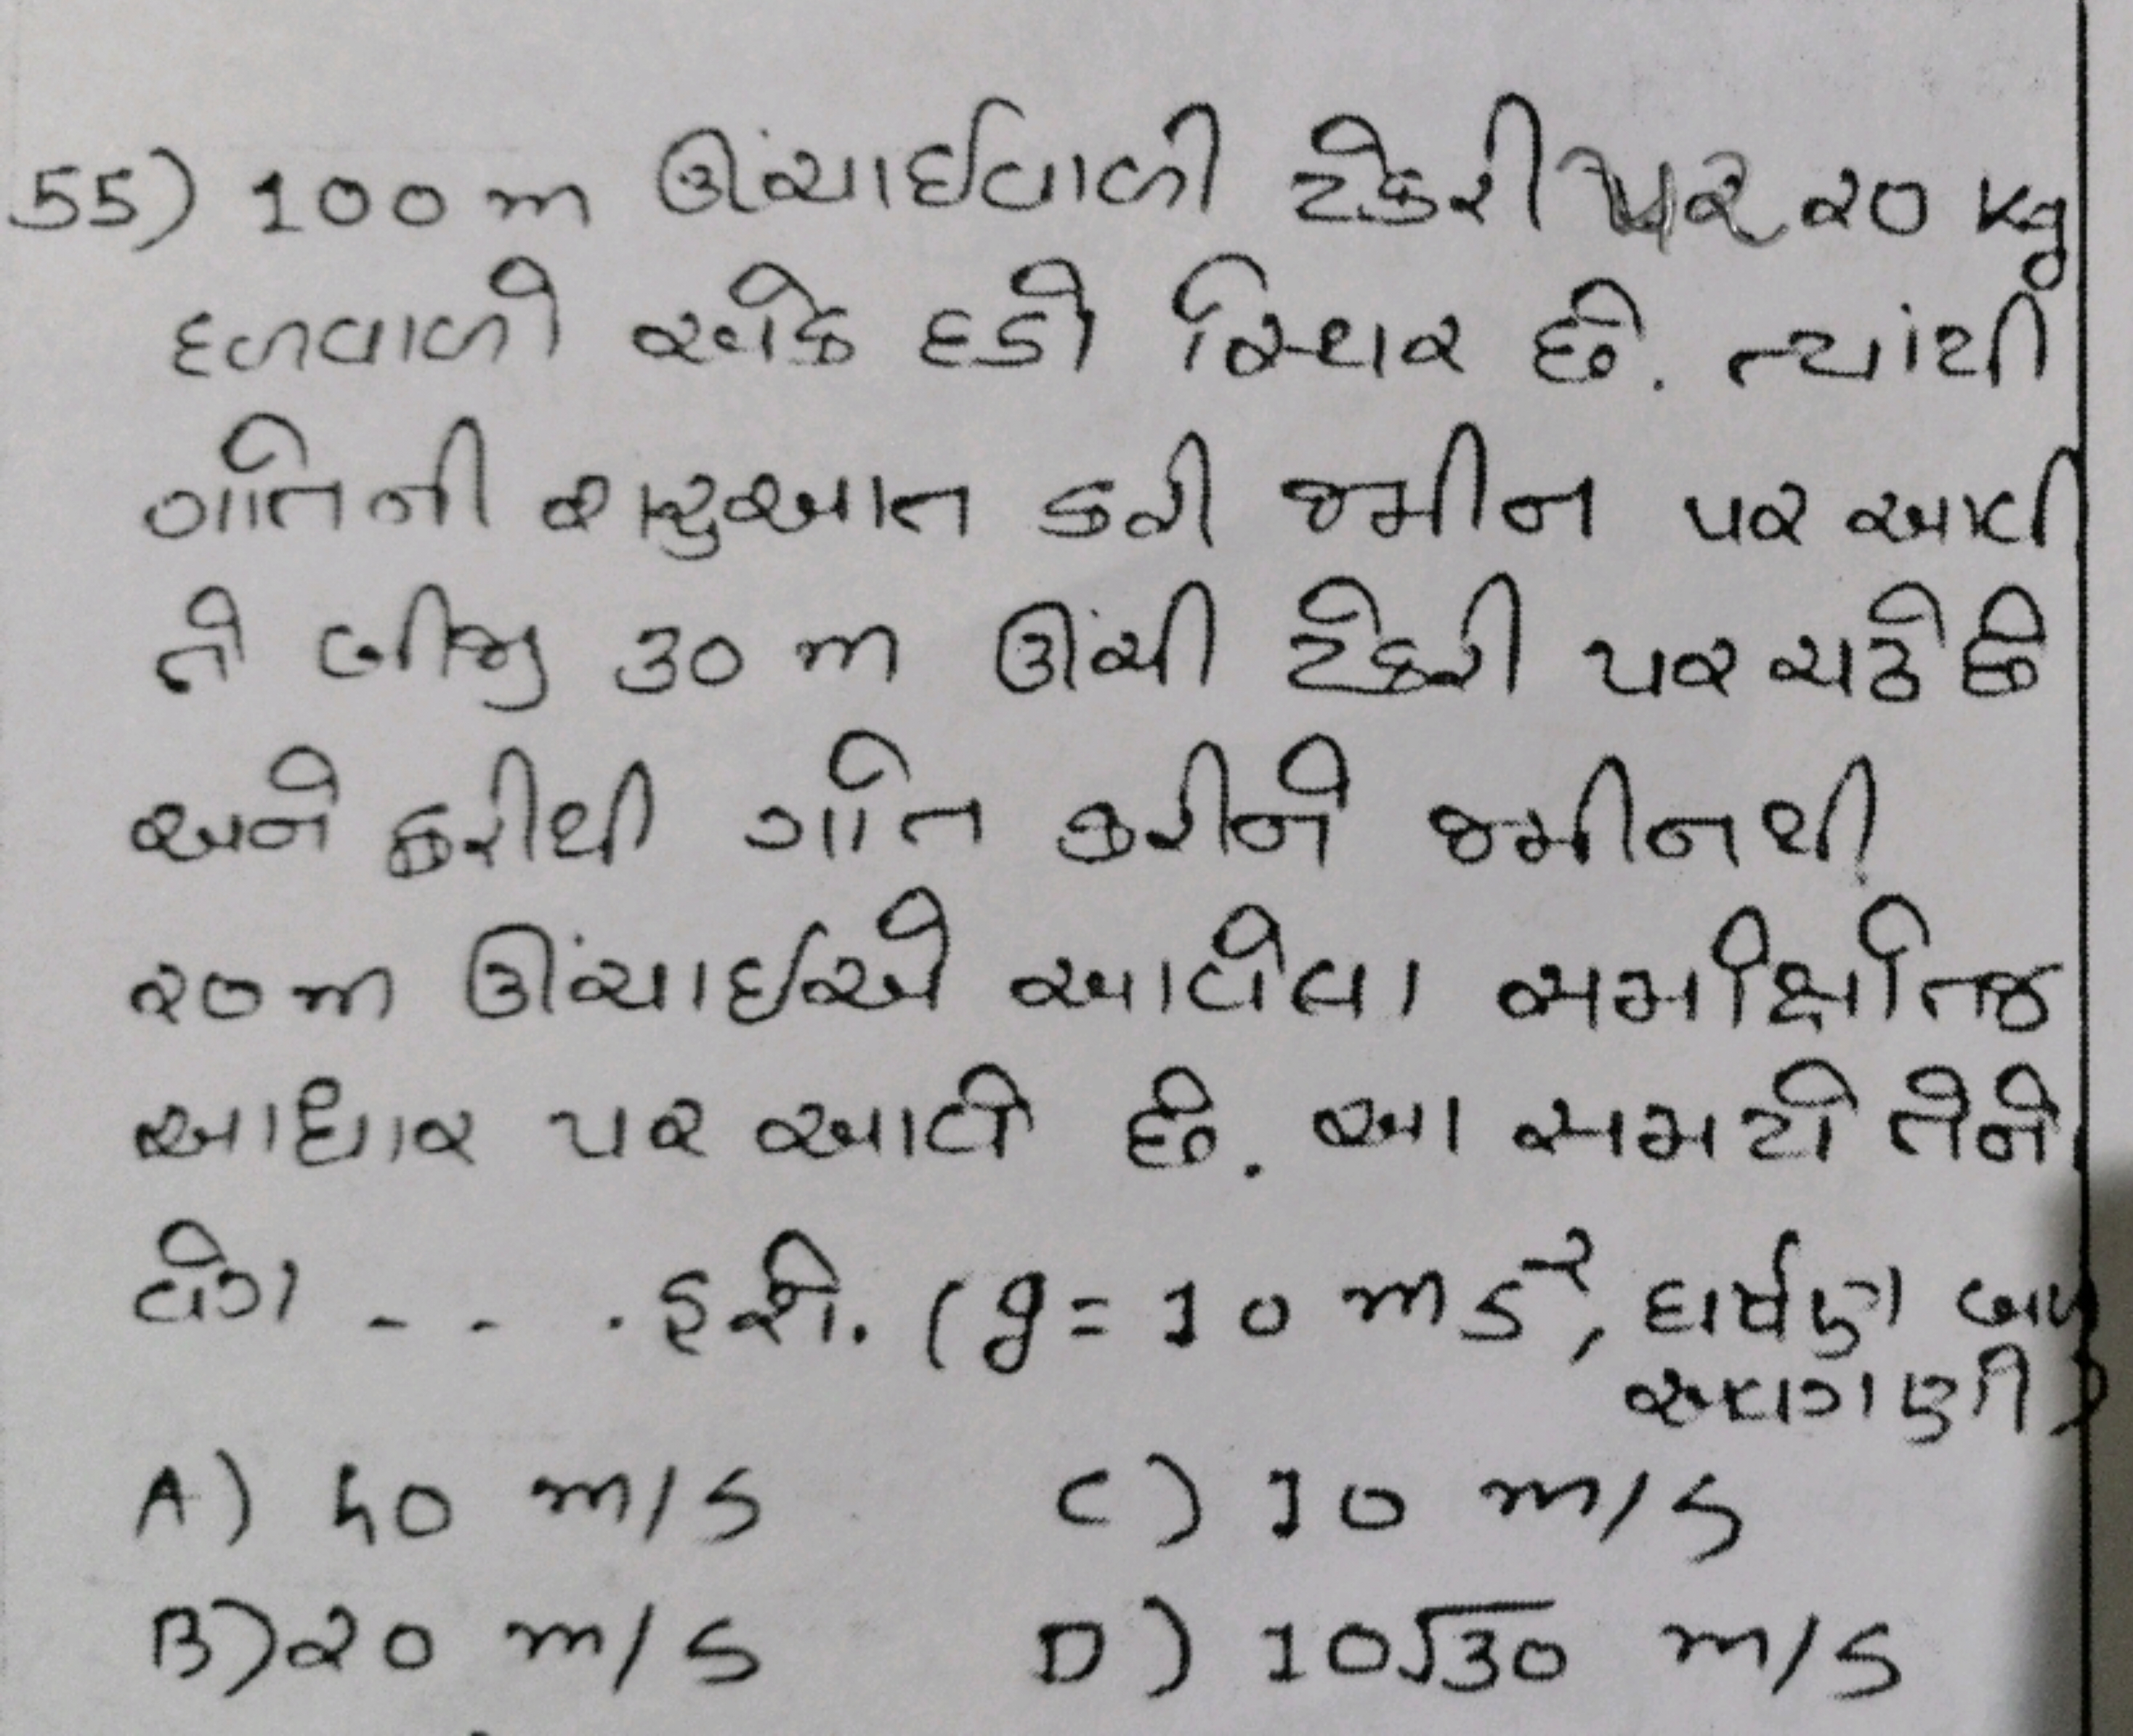 55) 100 m ઊંચાઈવાળી ટેકરી પર ૨0 kg
દળવાળો એક દડો સ્થિર છે. ત્યાંથી
ગતિની શરુઆત કરી જમીન પર આવી
તે બીજી 30 m ઊંચી ટેકરી પર ચઢે છે
અને ફરીથી ગતિ કરીને જમીનથી
૨0 m ઊંચાઈએ આવેલા સમક્ષિતિજ
આધાર પર આવે છે. આ સમયે તેનો
વેગ - - . . હશે. (g = 10 ms⁻², ઘર્ષણ બળ
અવગણો)
A) 40 m/s C) 10 m/s
B) ૨0 m/s D) 10√30 m/s